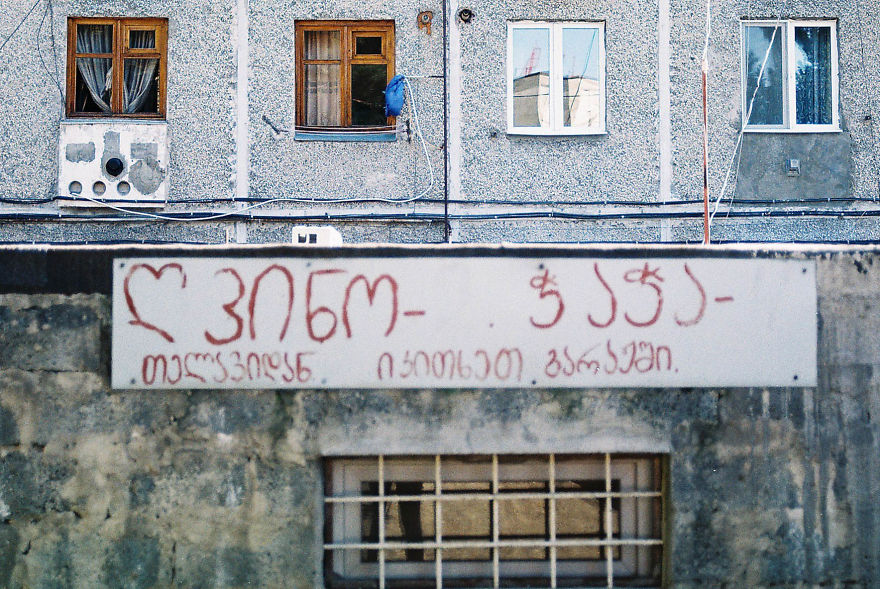 ღვინო- ჭაჭა-
თელავიდან. იკითხეთ გარაჟში.